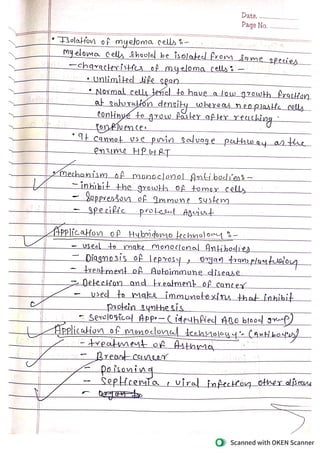 Date.
Page No.
• Isolation of myeloma cells :-
myeloma cells should be isolated from same species
- characteristics of myeloma cells :-
• Unlimited life span
• Normal cells tend to have a low growth fraction
at saturation density whereas neoplastic cells
continue to grow faster after reaching
confluence.
• It cannot use purin salvage pathway as the
enzime HPGRT
• mechanism of monoclonal Antibodies -
- inhibit the growth of tomor cells
- Suppression of Immune system
- specific protect Against
Application of Hybridoma technology :-
- used to make monoclonal Antibodies
- Diagnosis of leprosy, organ
- treatment of Autoimmune disease
- Detection and treatment of cancer
- used to make immunotoxins that inhibit
protein synthesis
- Serological App - (identified ABO blood group)
Application of monoclonal technology :- (Antibodies)
- treatment of Asthma
- Breast cancer
- Poisoning
- Septicemia, viral infection other disease
Scanned with OKEN Scanner